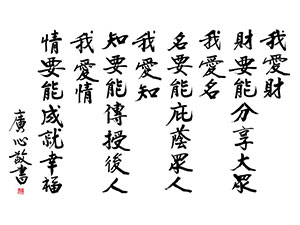 我愛財
財要能分享大眾
我愛名
名要能庇蔭眾人
我愛知
知要能傳授後人
我愛情
情要能成就幸福
廣心敬書